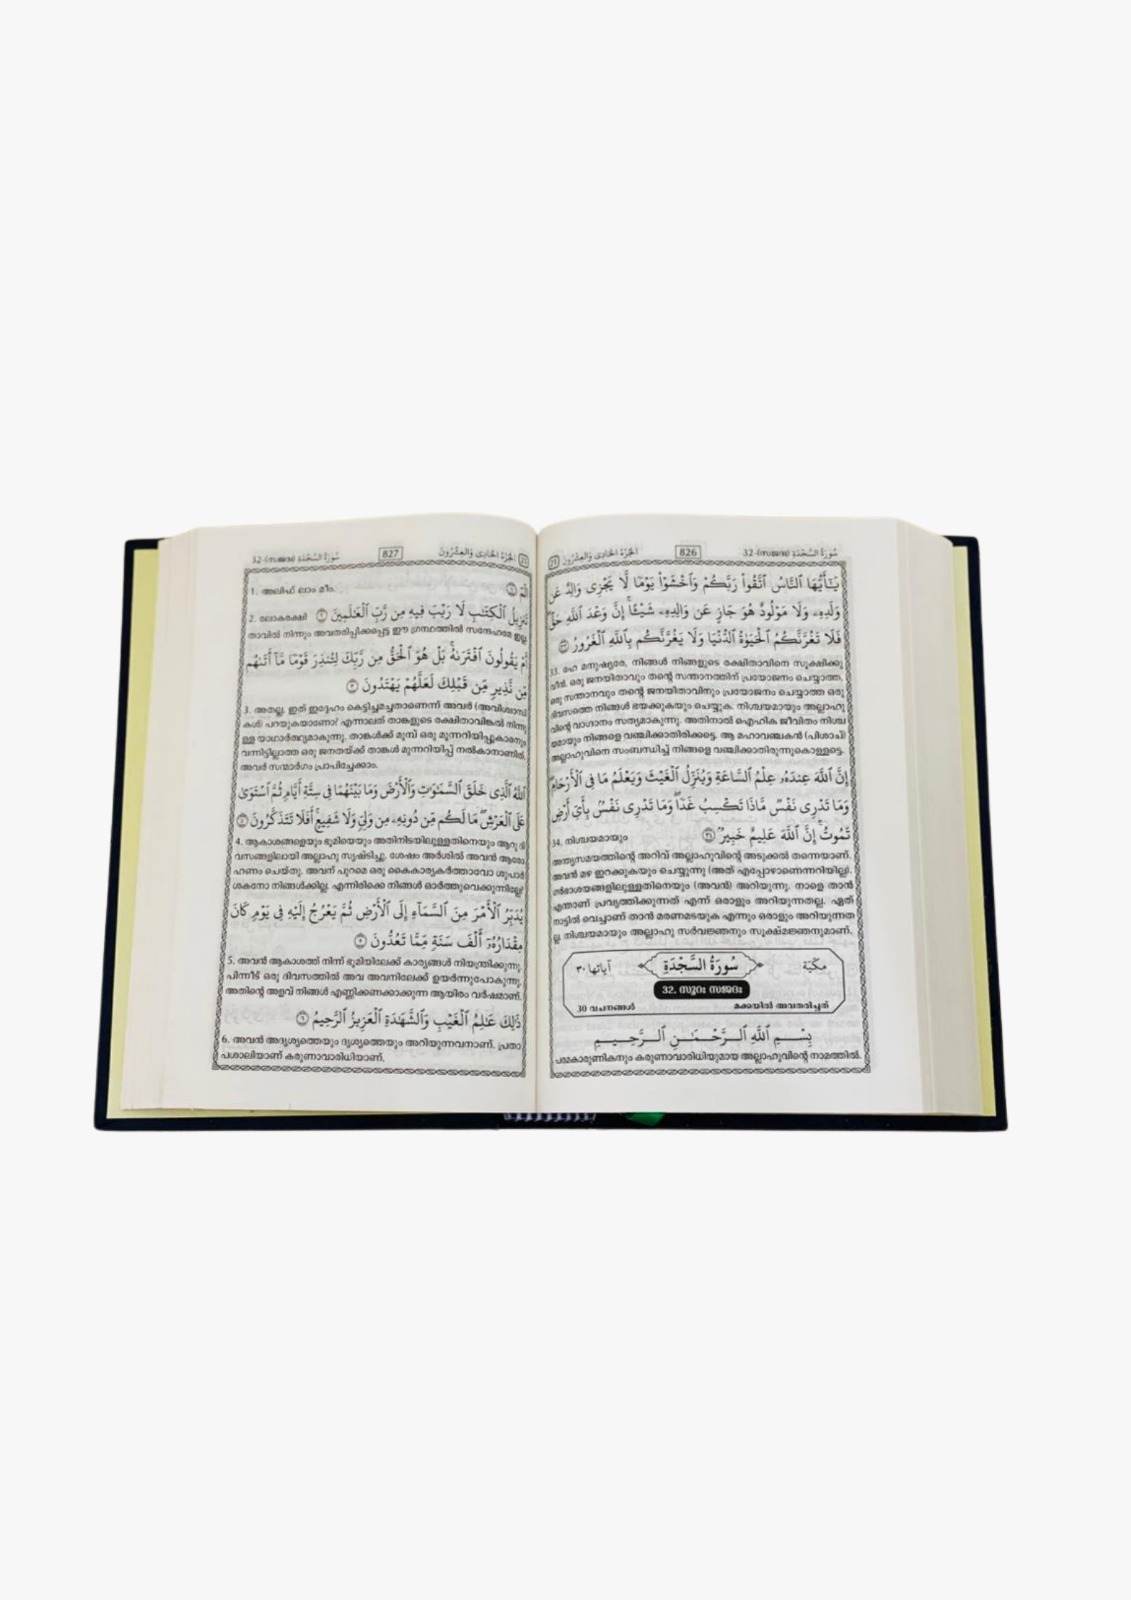 سُورَةُ السَّجْدَةِ (സജദഃ)-32
826
الجُزْءُ الحَادِى وَالعِشْرُونَ 21
يَٰٓأَيُّهَا ٱلنَّاسُ ٱتَّقُوا۟ رَبَّكُمْ وَٱخْشَوْا۟ يَوْمًا لَّا يَجْزِى وَالِدٌ عَن
وَلَدِهِۦ وَلَا مَوْلُودٌ هُوَ جَازٍ عَن وَالِدِهِۦ شَيْـًٔا ۚ إِنَّ وَعْدَ ٱللَّهِ حَقٌّ ۖ
فَلَا تَغُرَّنَّكُمُ ٱلْحَيَوٰةُ ٱلدُّنْيَا وَلَا يَغُرَّنَّكُم بِٱللَّهِ ٱلْغَرُورُ ٣٣
33. ഹേ മനുഷ്യരേ, നിങ്ങൾ നിങ്ങളുടെ രക്ഷിതാവിനെ സൂക്ഷിക്കു
വീൻ. ഒരു ജനയിതാവും തന്റെ സന്താനത്തിന് പ്രയോജനം ചെയ്യാത്ത,
ഒരു സന്താനവും തന്റെ ജനയിതാവിനും പ്രയോജനം ചെയ്യാത്ത ഒരു
ദിവസത്തെ നിങ്ങൾ ഭയക്കുകയും ചെയ്യുക. നിശ്ചയമായും അല്ലാഹു
വിന്റെ വാഗ്ദാനം സത്യമാകുന്നു. അതിനാൽ ഐഹിക ജീവിതം നിശ്ച
യമായും നിങ്ങളെ വഞ്ചിക്കാതിരിക്കട്ടെ. ആ മഹാവഞ്ചകൻ (പിശാച്)
അല്ലാഹുവിനെ സംബന്ധിച്ച് നിങ്ങളെ വഞ്ചിക്കാതിരുന്നുകൊള്ളട്ടെ.
إِنَّ ٱللَّهَ عِندَهُۥ عِلْمُ ٱلسَّاعَةِ وَيُنَزِّلُ ٱلْغَيْثَ وَيَعْلَمُ مَا فِى ٱلْأَرْحَامِ ۖ
وَمَا تَدْرِى نَفْسٌ مَّاذَا تَكْسِبُ غَدًا ۖ وَمَا تَدْرِى نَفْسٌۢ بِأَىِّ أَرْضٍ
تَمُوتُ ۚ إِنَّ ٱللَّهَ عَلِيمٌ خَبِيرٌۢ ٣٤ 34. നിശ്ചയമായും
അന്ത്യസമയത്തിന്റെ അറിവ് അല്ലാഹുവിന്റെ അടുക്കൽ തന്നെയാണ്.
അവൻ മഴ ഇറക്കുകയും ചെയ്യുന്നു (അത് എപ്പോഴാണെന്നറിയില്ല).
ഗർഭാശയങ്ങളിലുള്ളതിനെയും (അവൻ) അറിയുന്നു. നാളെ താൻ
എന്താണ് പ്രവൃത്തിക്കുന്നത് എന്ന് ഒരാളും അറിയുന്നതല്ല. ഏത്
നാട്ടിൽ വെച്ചാണ് താൻ മരണമടയുക എന്നും ഒരാളും അറിയുന്നത
ല്ല. നിശ്ചയമായും അല്ലാഹു സർവജ്ഞനും സൂക്ഷ്മജ്ഞനുമാണ്.
مكّيّة سُورَةُ السَّجْدَةِ آياتها ٣٠
32. സൂറഃ സജദഃ
30 വചനങ്ങൾ മക്കയിൽ അവതരിച്ചത്
بِسْمِ ٱللَّهِ ٱلرَّحْمَٰنِ ٱلرَّحِيمِ
പരമകാരുണികനും കരുണാവാരിധിയുമായ അല്ലാഹുവിന്റെ നാമത്തിൽ.
21 الجُزْءُ الحَادِى وَالعِشْرُونَ
827
سُورَةُ السَّجْدَةِ (സജദഃ)-32
الٓمٓ ١ 1. അലിഫ് ലാം മീം.
تَنزِيلُ ٱلْكِتَٰبِ لَا رَيْبَ فِيهِ مِن رَّبِّ ٱلْعَٰلَمِينَ ٢ 2. ലോകരക്ഷി
താവിൽ നിന്നും അവതരിപ്പിക്കപ്പെട്ട ഈ ഗ്രന്ഥത്തിൽ സന്ദേഹമേ ഇല്ല.
أَمْ يَقُولُونَ ٱفْتَرَىٰهُ ۚ بَلْ هُوَ ٱلْحَقُّ مِن رَّبِّكَ لِتُنذِرَ قَوْمًا مَّآ أَتَىٰهُم
مِّن نَّذِيرٍ مِّن قَبْلِكَ لَعَلَّهُمْ يَهْتَدُونَ ٣
3. അതല്ല, ഇത് ഇദ്ദേഹം കെട്ടിച്ചമച്ചതാണെന്ന് അവർ (അവിശ്വാസി
കൾ) പറയുകയാണോ? എന്നാലത് താങ്കളുടെ രക്ഷിതാവിങ്കൽ നിന്നു
ള്ള യാഥാർത്ഥ്യമാകുന്നു. താങ്കൾക്ക് മുമ്പ് ഒരു മുന്നറിയിപ്പുകാരനും
വന്നിട്ടില്ലാത്ത ഒരു ജനതയ്ക്ക് താങ്കൾ മുന്നറിയിപ്പ് നൽകാനാണിത്.
അവർ സന്മാർഗം പ്രാപിച്ചേക്കാം.
ٱللَّهُ ٱلَّذِى خَلَقَ ٱلسَّمَٰوَٰتِ وَٱلْأَرْضَ وَمَا بَيْنَهُمَا فِى سِتَّةِ أَيَّامٍ ثُمَّ ٱسْتَوَىٰ
عَلَى ٱلْعَرْشِ ۖ مَا لَكُم مِّن دُونِهِۦ مِن وَلِىٍّ وَلَا شَفِيعٍ ۚ أَفَلَا تَتَذَكَّرُونَ ٤
4. ആകാശങ്ങളെയും ഭൂമിയെയും അതിനിടയിലുള്ളതിനെയും ആറു ദി
വസങ്ങളിലായി അല്ലാഹു സൃഷ്ടിച്ചു. ശേഷം അർശിൽ അവൻ ആരോ
ഹണം ചെയ്തു. അവന് പുറമെ ഒരു കൈകാര്യകർത്താവോ ശുപാർ
ശകനോ നിങ്ങൾക്കില്ല. എന്നിരിക്കെ നിങ്ങൾ ഓർത്തുവെക്കുന്നില്ലേ!
يُدَبِّرُ ٱلْأَمْرَ مِنَ ٱلسَّمَآءِ إِلَى ٱلْأَرْضِ ثُمَّ يَعْرُجُ إِلَيْهِ فِى يَوْمٍ كَانَ
مِقْدَارُهُۥٓ أَلْفَ سَنَةٍ مِّمَّا تَعُدُّونَ ٥
5. അവൻ ആകാശത്ത് നിന്ന് ഭൂമിയിലേക്ക് കാര്യങ്ങൾ നിയന്ത്രിക്കുന്നു.
പിന്നീട് ഒരു ദിവസത്തിൽ അവ അവനിലേക്ക് ഉയർന്നുപോകുന്നു.
അതിന്റെ അളവ് നിങ്ങൾ എണ്ണിക്കണക്കാക്കുന്ന ആയിരം വർഷമാണ്.
ذَٰلِكَ عَٰلِمُ ٱلْغَيْبِ وَٱلشَّهَٰدَةِ ٱلْعَزِيزُ ٱلرَّحِيمُ ٦
6. അവൻ അദൃശ്യത്തെയും ദൃശ്യത്തെയും അറിയുന്നവനാണ്. പ്രതാ
പശാലിയാണ് കരുണാവാരിധിയാണ്.